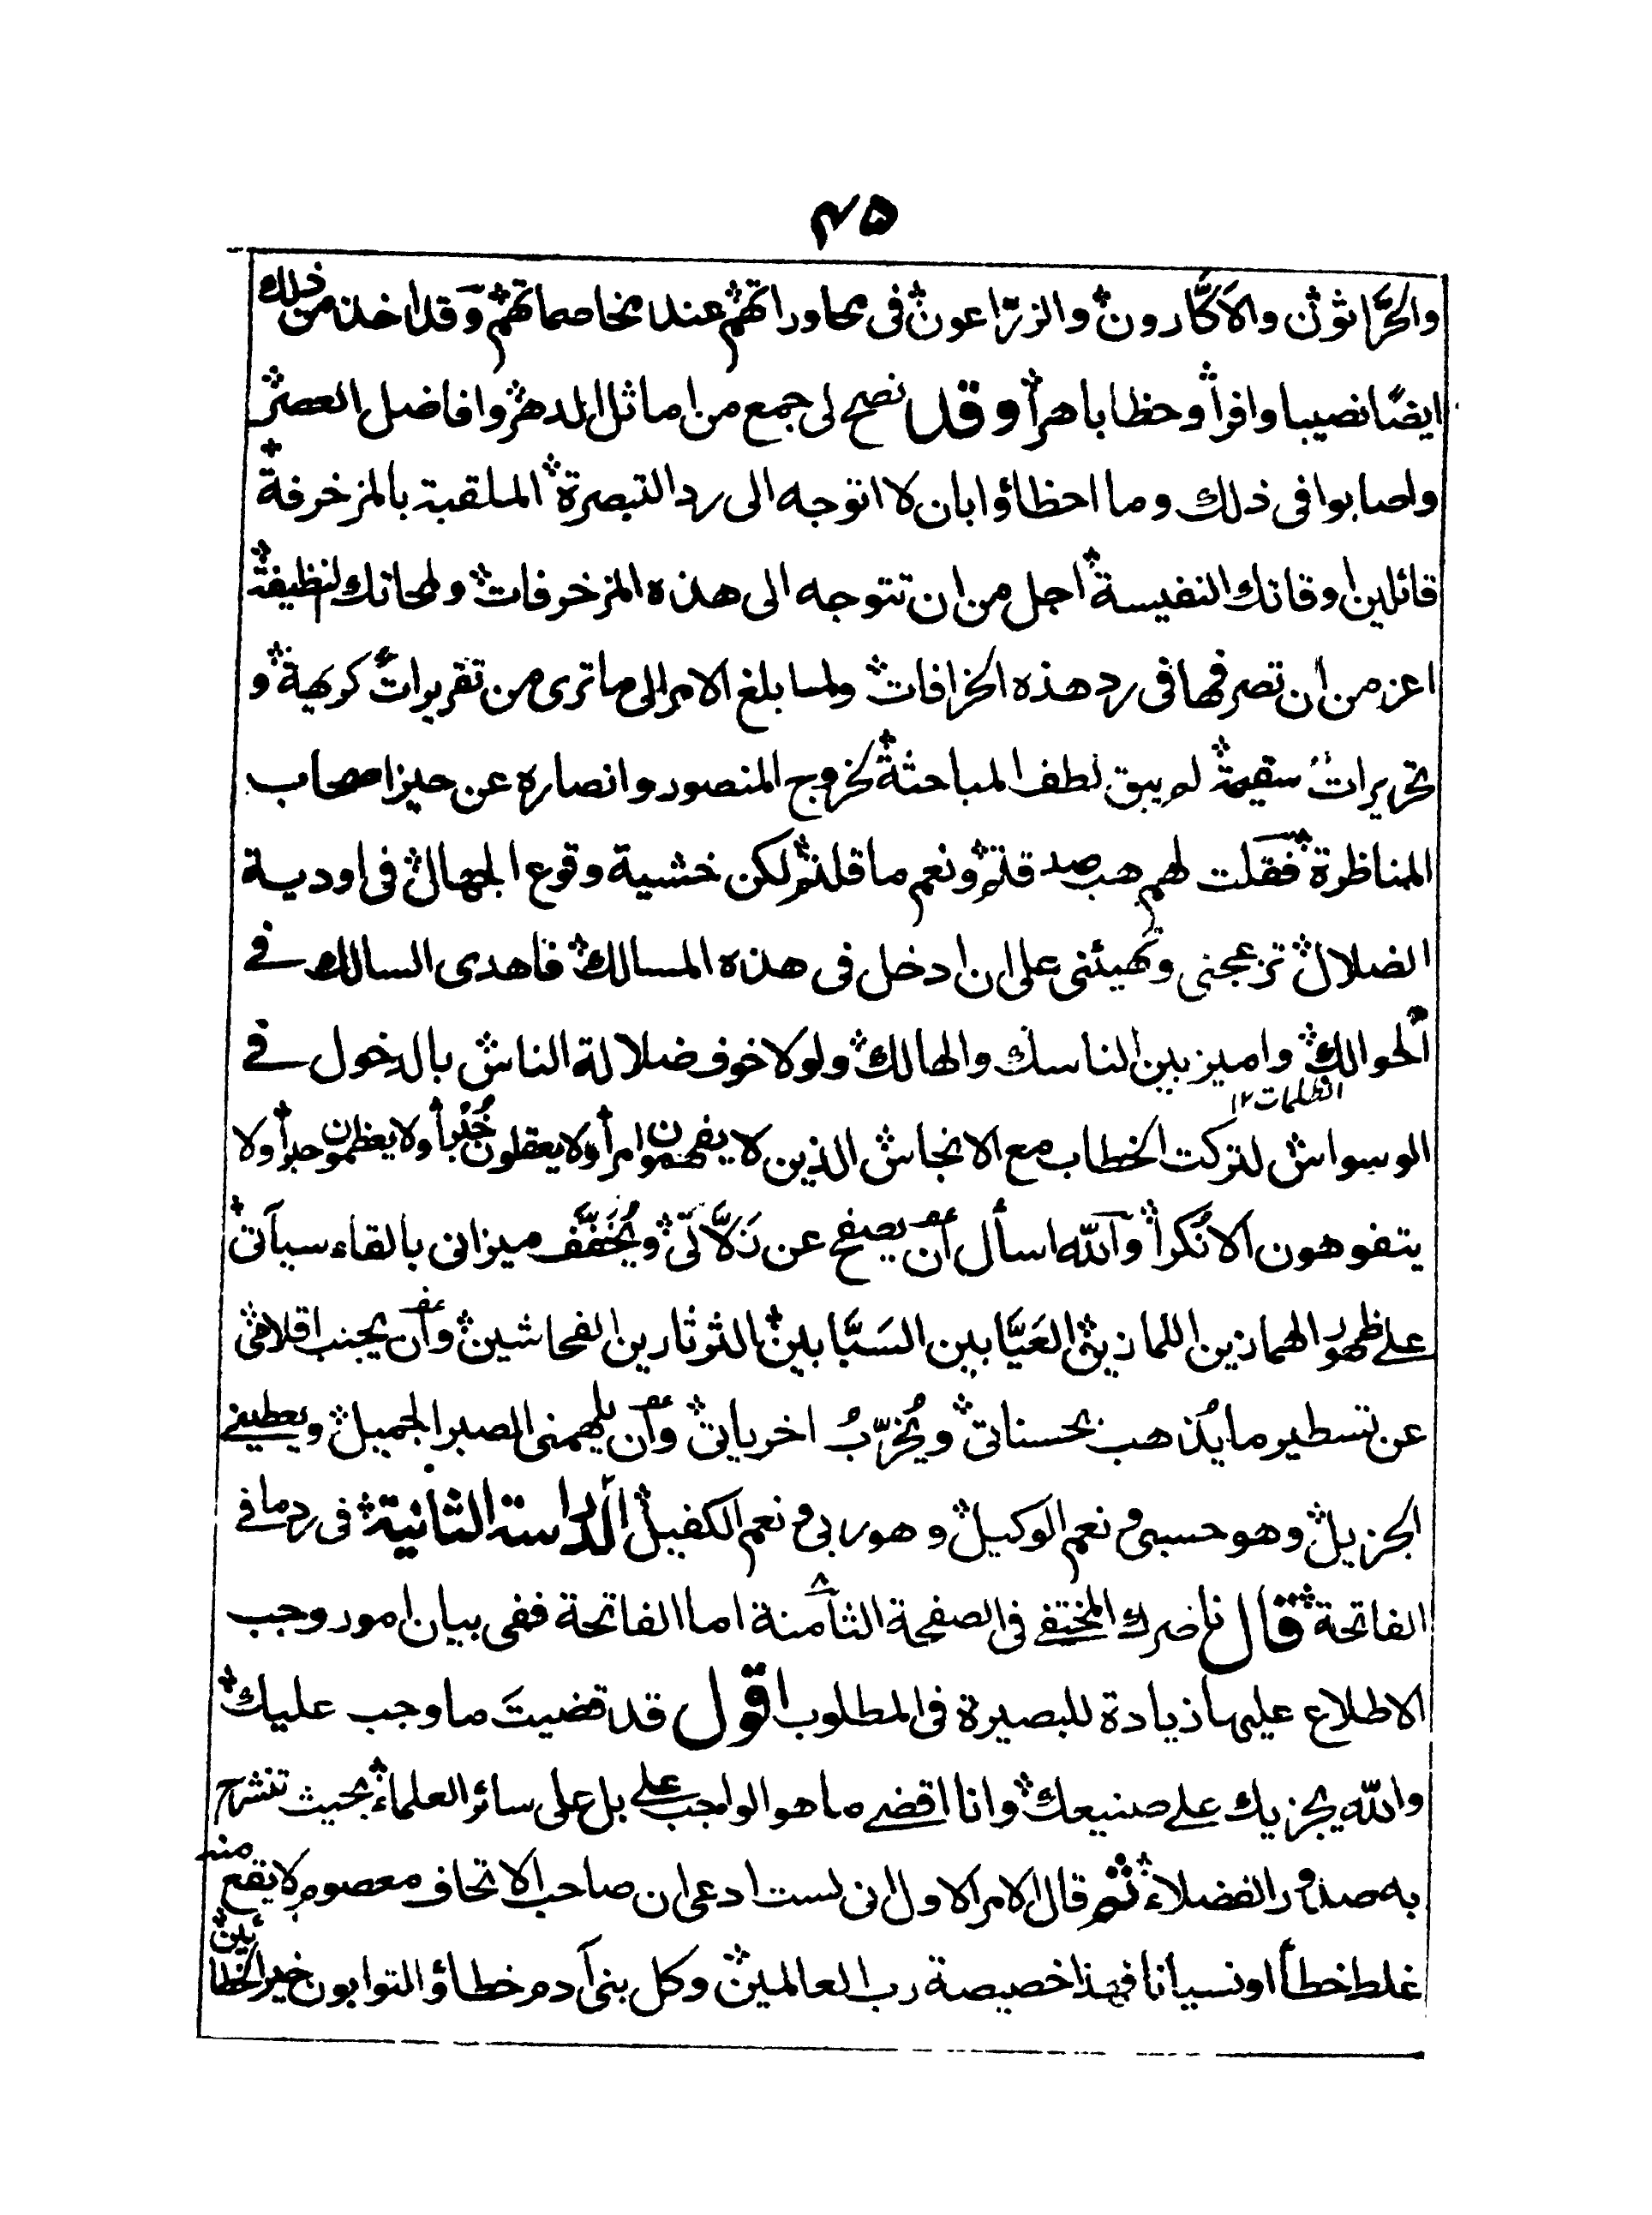 ٤٥
والحَرَّاثون والاَكَّارون والزرّاعون فى محاوراتهم عند مخاصماتهم وقد اخذ من ذلك
ايضًا نصيبا وافرأ وحظا باهرأ وقد نصح لى جمع من اماثل الدهر وافاضل العصر
واصابوا فى ذلك وما اخطاؤا بان لا اتوجه الى رد التبصرة الملقبة بالمزخرفة
قائلين اوقاتك النفيسة اجل من ان تتوجه الى هذه المزخرفات ولمحاتك لنظيفة
اعز من ان تصرفها فى رد هذه الخرافات ولما بلغ الامر الى ما ترى من تقريرات كريهة و
تحريرات سقيمة لم يبق لطف المباحثة لخروج المنصور وانصاره عن حيز اصحاب
المناظرة فقلت لهم هب صدقتم ونعم ما قلتم لكن خشية وقوع الجهال فى اودية
الضلال تزعجنى وتهيئنى على ان ادخل فى هذه المسالك فاهدى السالك فے
الحوالك وا ميز بين الناسك والهالك ولولا خوف ضلالة الناس بالدخول فے
الظلمات ١٢
الوسواس لتركت الخطاب مع الانجاس الذين لا يفهمون امرأ ولا يعقلون خُبرأ ولا يعظمون حبرأ ولا
يتفوهون الا نُكرأ والله اسأل ان يصفح عن زَلَّاتى ويُخَفَّف ميزانى بالقاء سيآتى
علے ظهور الهمازين اللمازين العَيَّابين السَبَّابين الثرثارين الفحاشين وان يجنب اقلامى
عن تسطير ما يُذهب بحسناتى ويُخرّبُ اخرياتى وان يلهمنى الصبر الجميل ويعطينے
الجزيل وهو حسبى و نعم الوكيل وهو ربى و نعم الكفيل الدراسة الثانية فى رد ما فے
الفاتحة قال ناصرك المختفے فى الصفحة الثامنة اما الفاتحة ففى بيان امور وجب
الاطلاع عليها زيادة للبصيرة فى المطلوب اقول قد قضيتَ ما وجب عليك
والله يجزيك علے صنيعك وانا اقضے ما هو الواجب علے بل على سائر العلماء بحيث تنشرح
به صدور الفضلاء ثم قال الامر الاول انى لست ادعى ان صاحب الاتحاف معصوم لا يقع منه
غلط خطأ او نسيانا فهذا خصيصة رب العالمين وكل بنى آدم خطاؤ التوابون خير الخطائين